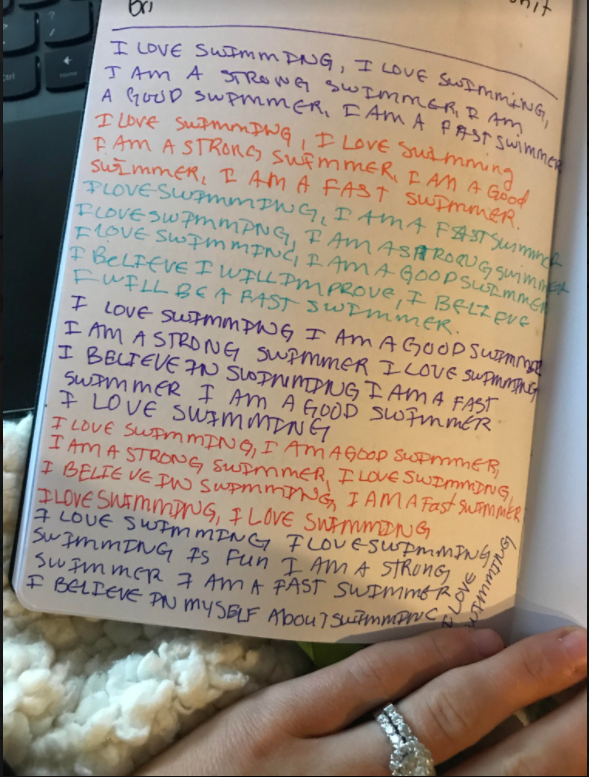 Bri unit
I LOVE SWIMMING, I LOVE SWIMMING,
I AM A STRONG SWIMMER, I AM
A GOOD SWIMMER, I AM A FAST SWIMMER
I LOVE SWIMMING, I LOVE SWIMMING
I AM A STRONG SWIMMER, I AM A GOOD
SWIMMER, I AM A FAST SWIMMER.
I LOVE SWIMMING, I AM A FAST SWIMMER
I LOVE SWIMMING, I AM A STRONG SWIMMER
I LOVE SWIMMING, I AM A GOOD SWIMMER
I BELIEVE I WILL IMPROVE, I BELIEVE
I WILL BE A FAST SWIMMER.
I LOVE SWIMMING I AM A GOOD SWIMMER
I AM A STRONG SWIMMER I LOVE SWIMMING
I BELIEVE IN SWIMMING I AM A FAST
SWIMMER I AM A GOOD SWIMMER
I LOVE SWIMMING
I LOVE SWIMMING, I AM A GOOD SWIMMER,
I AM A STRONG SWIMMER, I LOVE SWIMMING,
I BELIEVE IN SWIMMING, I AM A FAST SWIMMER
I LOVE SWIMMING, I LOVE SWIMMING
I LOVE SWIMMING I LOVE SWIMMING
SWIMMING IS FUN I AM A STRONG
SWIMMER I AM A FAST SWIMMER
I BELIEVE IN MYSELF ABOUT SWIMMING
I LOVE
SWIMMING
Ctrl
Home